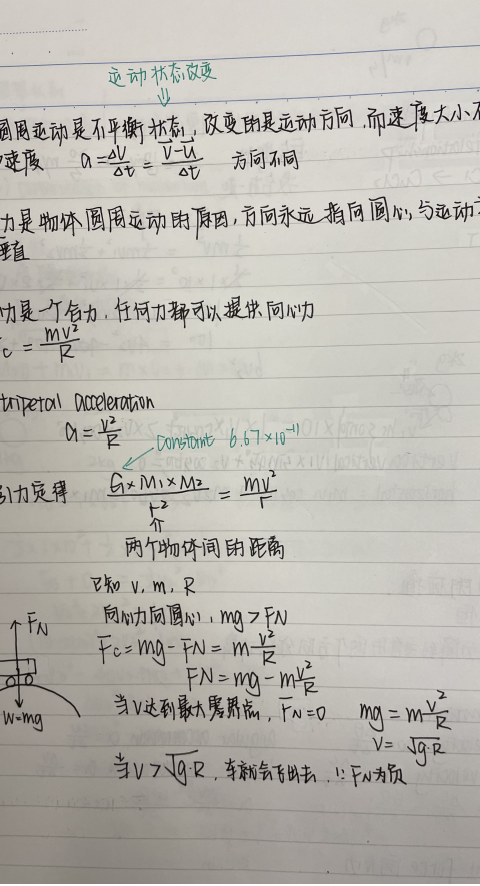 运动状态改变
⇓
圆周运动是不平衡状态, 改变的是运动方向, 而速度大小不
速度 a = ΔV/Δt = (V-U)/Δt 方向不同
力是物体圆周运动的原因, 方向永远指向圆心, 与运动方
垂直
力是一个合力, 任何力都可以提供向心力
c = mv²/R
tripetal acceleration
a = v²/R
constant 6.67×10⁻¹¹
引力定得 G×M₁×M₂/r² = mv²/r
⇑
两个物体间的距离
已知 v, m, R
向心力向圆心, mg > FN
Fc = mg - FN = m v²/R
FN = mg - m v²/R
当V达到最大零界点, FN=0 mg = m v²/R
V = √g·R
当V>√g·R, 车就会飞出去, ∵ FN为负
FN
W=mg